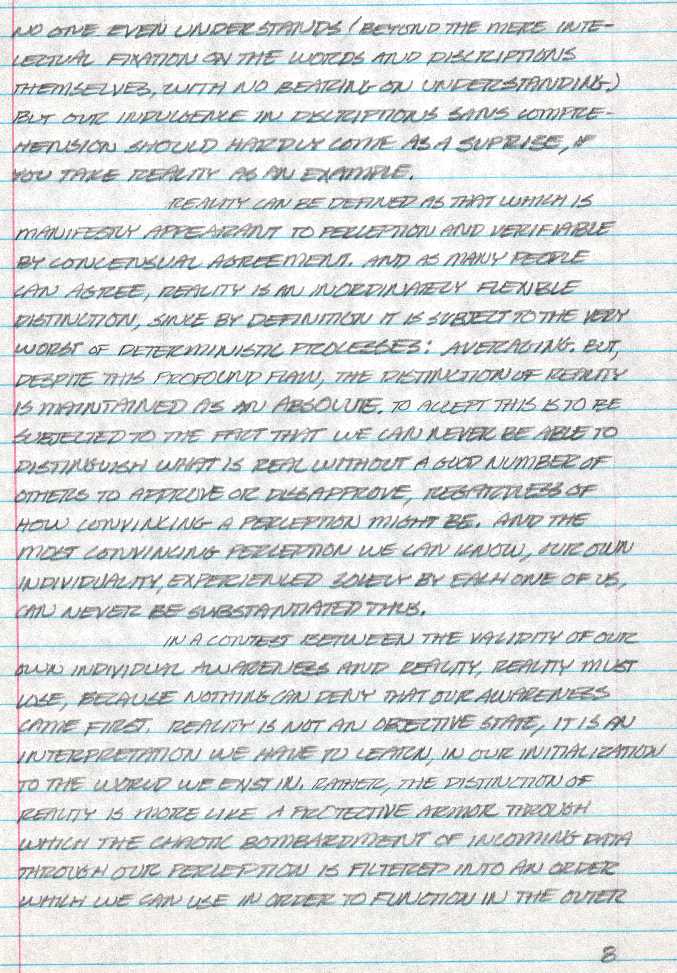 NO ONE EVEN UNDERSTANDS (BEYOND THE MERE INTE-
LECTUAL FIXATION ON THE WORDS AND DISCRIPTIONS
THEMSELVES, WITH NO BEARING ON UNDERSTANDING.)
BUT OUR INDULGENCE IN DISCRIPTIONS SANS COMPRE-
HENSION SHOULD HARDLY COME AS A SUPRISE, IF
YOU TAKE REALITY AS AN EXAMPLE.
REALITY CAN BE DEFINED AS THAT WHICH IS
MANIFESTLY APPEARANT TO PERCEPTION AND VERIFIABLE
BY CONCENSUAL AGREEMENT. AND AS MANY PEOPLE
CAN AGREE, REALITY IS AN INORDINATELY FLEXIBLE
DISTINCTION, SINCE BY DEFINITION IT IS SUBJECT TO THE VERY
WORST OF DETERMINISTIC PROCESSES: AVERAGING. BUT,
DESPITE THIS PROFOUND FLAW, THE DISTINCTION OF REALITY
IS MAINTAINED AS AN ABSOLUTE. TO ACCEPT THIS IS TO BE
SUBJECTED TO THE FACT THAT WE CAN NEVER BE ABLE TO
DISTINGUISH WHAT IS REAL WITHOUT A GOOD NUMBER OF
OTHERS TO APPROVE OR DISSAPPROVE, REGARDLESS OF
HOW CONVINCING A PERCEPTION MIGHT BE. AND THE
MOST CONVINCING PERCEPTION WE CAN KNOW, OUR OWN
INDIVIDUALITY, EXPERIENCED SOLELY BY EACH ONE OF US,
CAN NEVER BE SUBSTANTIATED THUS.
IN A CONTEST BETWEEN THE VALIDITY OF OUR
OWN INDIVIDUAL AWARENESS AND REALITY, REALITY MUST
LOSE, BECAUSE NOTHING CAN DENY THAT OUR AWARENESS
CAME FIRST. REALITY IS NOT AN OBJECTIVE STATE, IT IS AN
INTERPRETATION WE HAVE TO LEARN, IN OUR INITIALIZATION
TO THE WORLD WE EXIST IN. RATHER, THE DISTINCTION OF
REALITY IS MORE LIKE A PROTECTIVE ARMOR THROUGH
WHICH THE CHAOTIC BOMBARDMENT OF INCOMING DATA
THROUGH OUR PERCEPTION IS FILTERED INTO AN ORDER
WHICH WE CAN USE IN ORDER TO FUNCTION IN THE OUTER
8